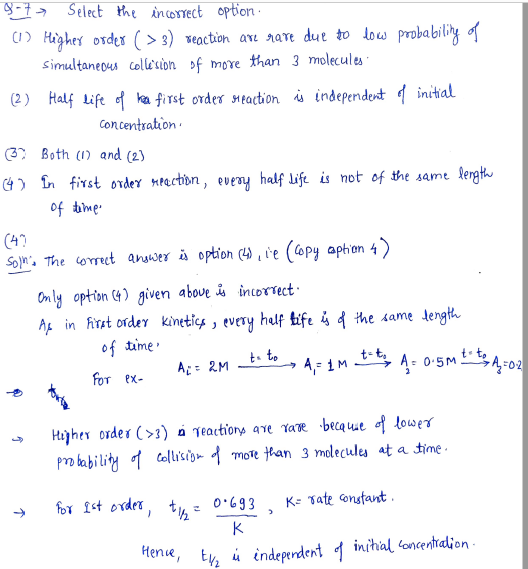 Q-7 → Select the incorrect option.
(1) Higher order ( > 3) reaction are rare due to low probability of
simultaneous collision of more than 3 molecules.
(2) Half life of first order reaction is independent of initial
concentration.
(3) Both (1) and (2)
(4) In first order reaction, every half life is not of the same length
of time.
(4)
Soln. The correct answer is option (4), i.e (copy option 4)
Only option (4) given above is incorrect.
As in first order kinetics, every half life is of the same length
of time.
For ex- Ai = 2M t=t₀ → A₁ = 1M t=t₀ → A₂ = 0.5M t=t₀ → A₃=0.2
→ Higher order (>3) reactions are rare because of lower
probability of collision of more than 3 molecules at a time.
→ for 1st order, t1/2 = 0.693/K , K= rate constant.
Hence, t1/2 is independent of initial concentration.